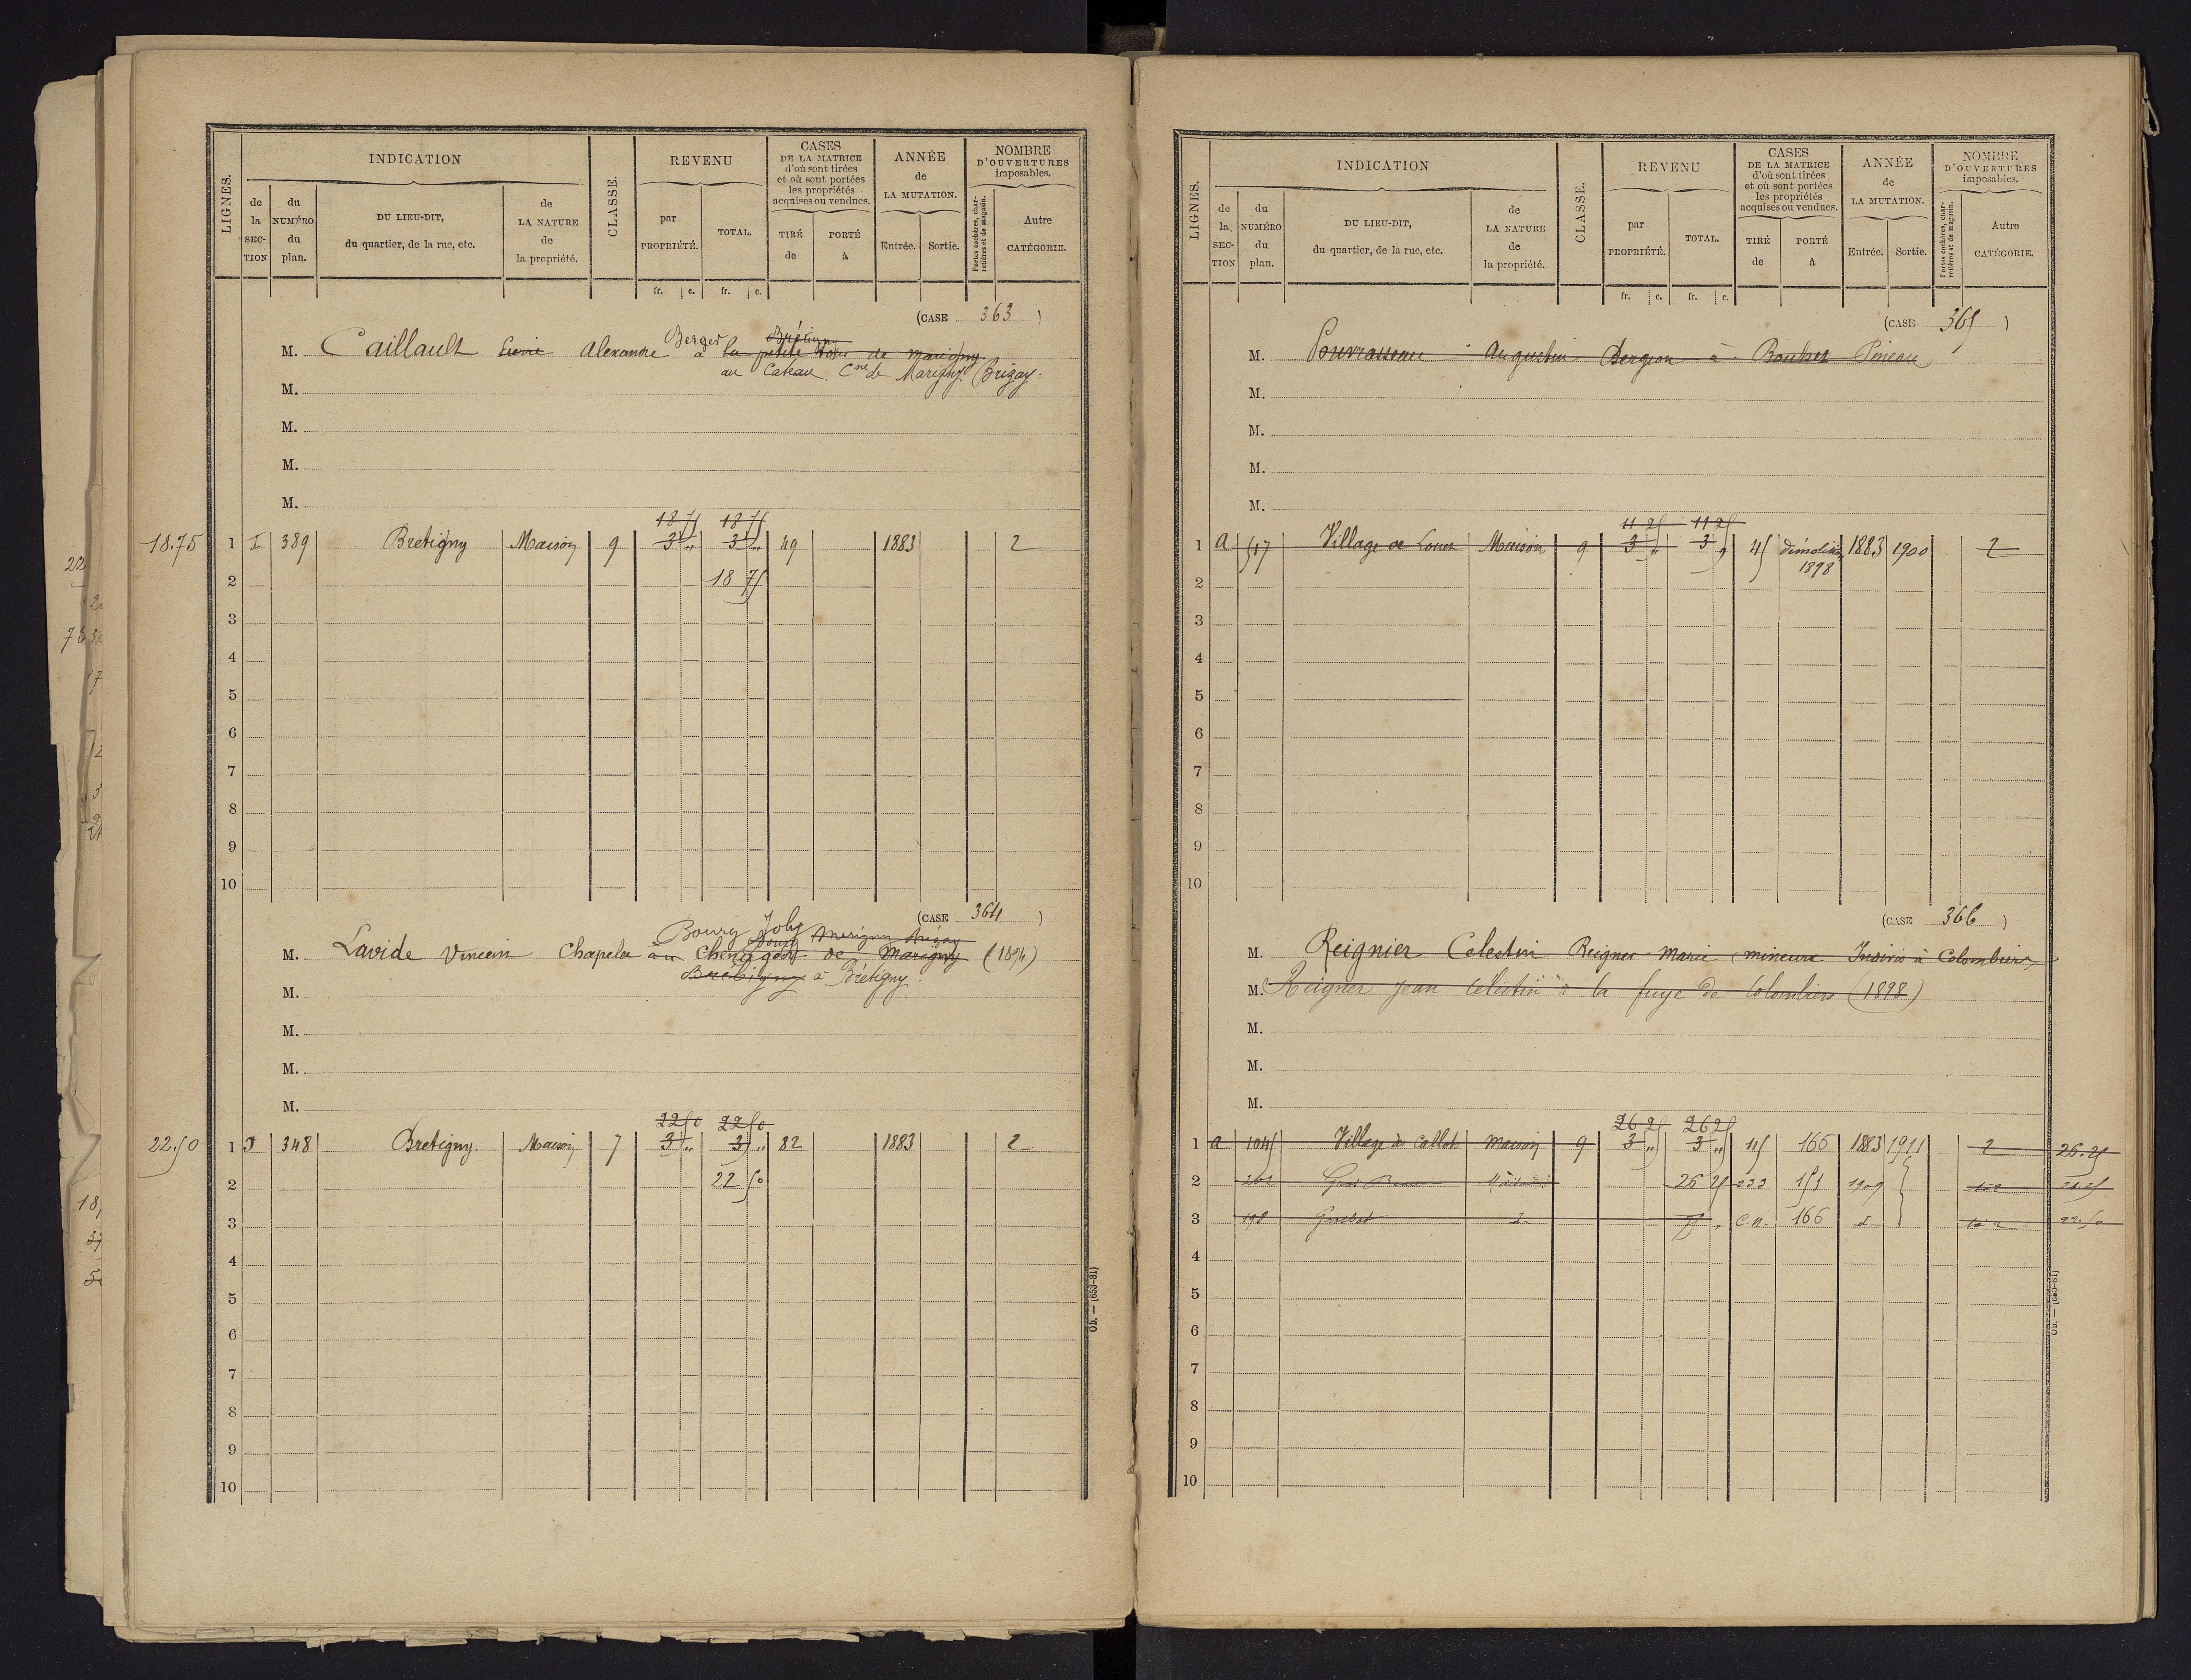 LIGNES. INDICATION CLASSE. REVENU CASES DE LA MATRICE d'où sont tirées et où sont portées les propriétés acquises ou vendues. ANNÉE de LA MUTATION. NOMBRE D'OUVERTURES imposables.
de la SECTION du NUMÉRO du plan. DU LIEU-DIT, du quartier, de la rue, etc. de LA NATURE de la propriété. par PROPRIÉTÉ. TOTAL. TIRÉ de PORTÉ à Entrée. Sortie. Portes cochères, charretières et de magasin. Autre CATÉGORIE.
fr. c. fr. c.
(CASE 363 )
Berger
M. Caillault Alexandre à la petite de marigny
au Cateau. Cne de Marigny Brizay.
M.
M.
M.
M.
18 75 18 75
18.75 1 I 389 Bretigny Maison 9 3 „ 3 „ 49 1883 2
2 18 75
3
4
5
6
7
8
9
10
(CASE 364 )
Bourg Joly
Marigny Brizay
M. Lavide Vincent Chapelu au de Marigny (1894)
Bretigny à Brétigny.
M.
M.
M.
M.
22 50 22 50
22.50 1 I 348 Bretigny. Maison 7 3 „ 3 „ 82 1883 2
2 22 50
3
4
5
6
7
8
9
10
Ob. — (653-81)
LIGNES. INDICATION CLASSE. REVENU CASES DE LA MATRICE d'où sont tirées et où sont portées les propriétés acquises ou vendues. ANNÉE de LA MUTATION. NOMBRE D'OUVERTURES imposables.
de la SECTION du NUMÉRO du plan. DU LIEU-DIT, du quartier, de la rue, etc. de LA NATURE de la propriété. par PROPRIÉTÉ. TOTAL. TIRÉ de PORTÉ à Entrée. Sortie. Portes cochères, charretières et de magasin. Autre CATÉGORIE.
fr. c. fr. c.
(CASE 365 )
M. Pouvrasseau Augustin Bergeon à
M.
M.
M.
M.
11 25 11 25
1 A 517 Village de Maison 9 3 „ 3 „ 45 démolition 1883 1900 2
2 1898
3
4
5
6
7
8
9
10
(CASE 366 )
M. Reignier Celestin Reigner Marie mineure Indivis à Colombiers
M. Reigner Jean Célestin à la fuye de Colombiers (1898)
M.
M.
M.
26 25 26 25
1 A 1045 Village des Callots Maison 9 3 „ 3 „ 45 166 1883 1911 2 26.25
2 Maison 26 25 233 151 1909 26.25
3 198 75 „ C.n. 166 d 22.50
4
5
6
7
8
9
10
Ob. — (653-81)